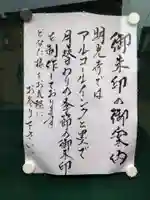 御朱印の御案内
明見寺では
アルコールインクと墨で
月替わりの季節の御朱印
を制作しております
どなた様もお気軽に
お参り下さい